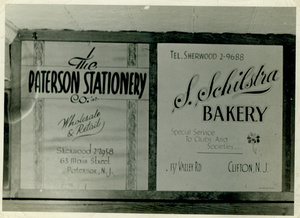 The
PATERSON STATIONERY
Co. Inc.
Wholesale
& Retail
SHERWOOD 2-
Main Street
PATERSON, N.J.
TEL. SHERWOOD 2-9688
S. Schilstra
BAKERY
Special Service
To Clubs And
Societies
117 VALLEY RD CLIFTON, N.J.